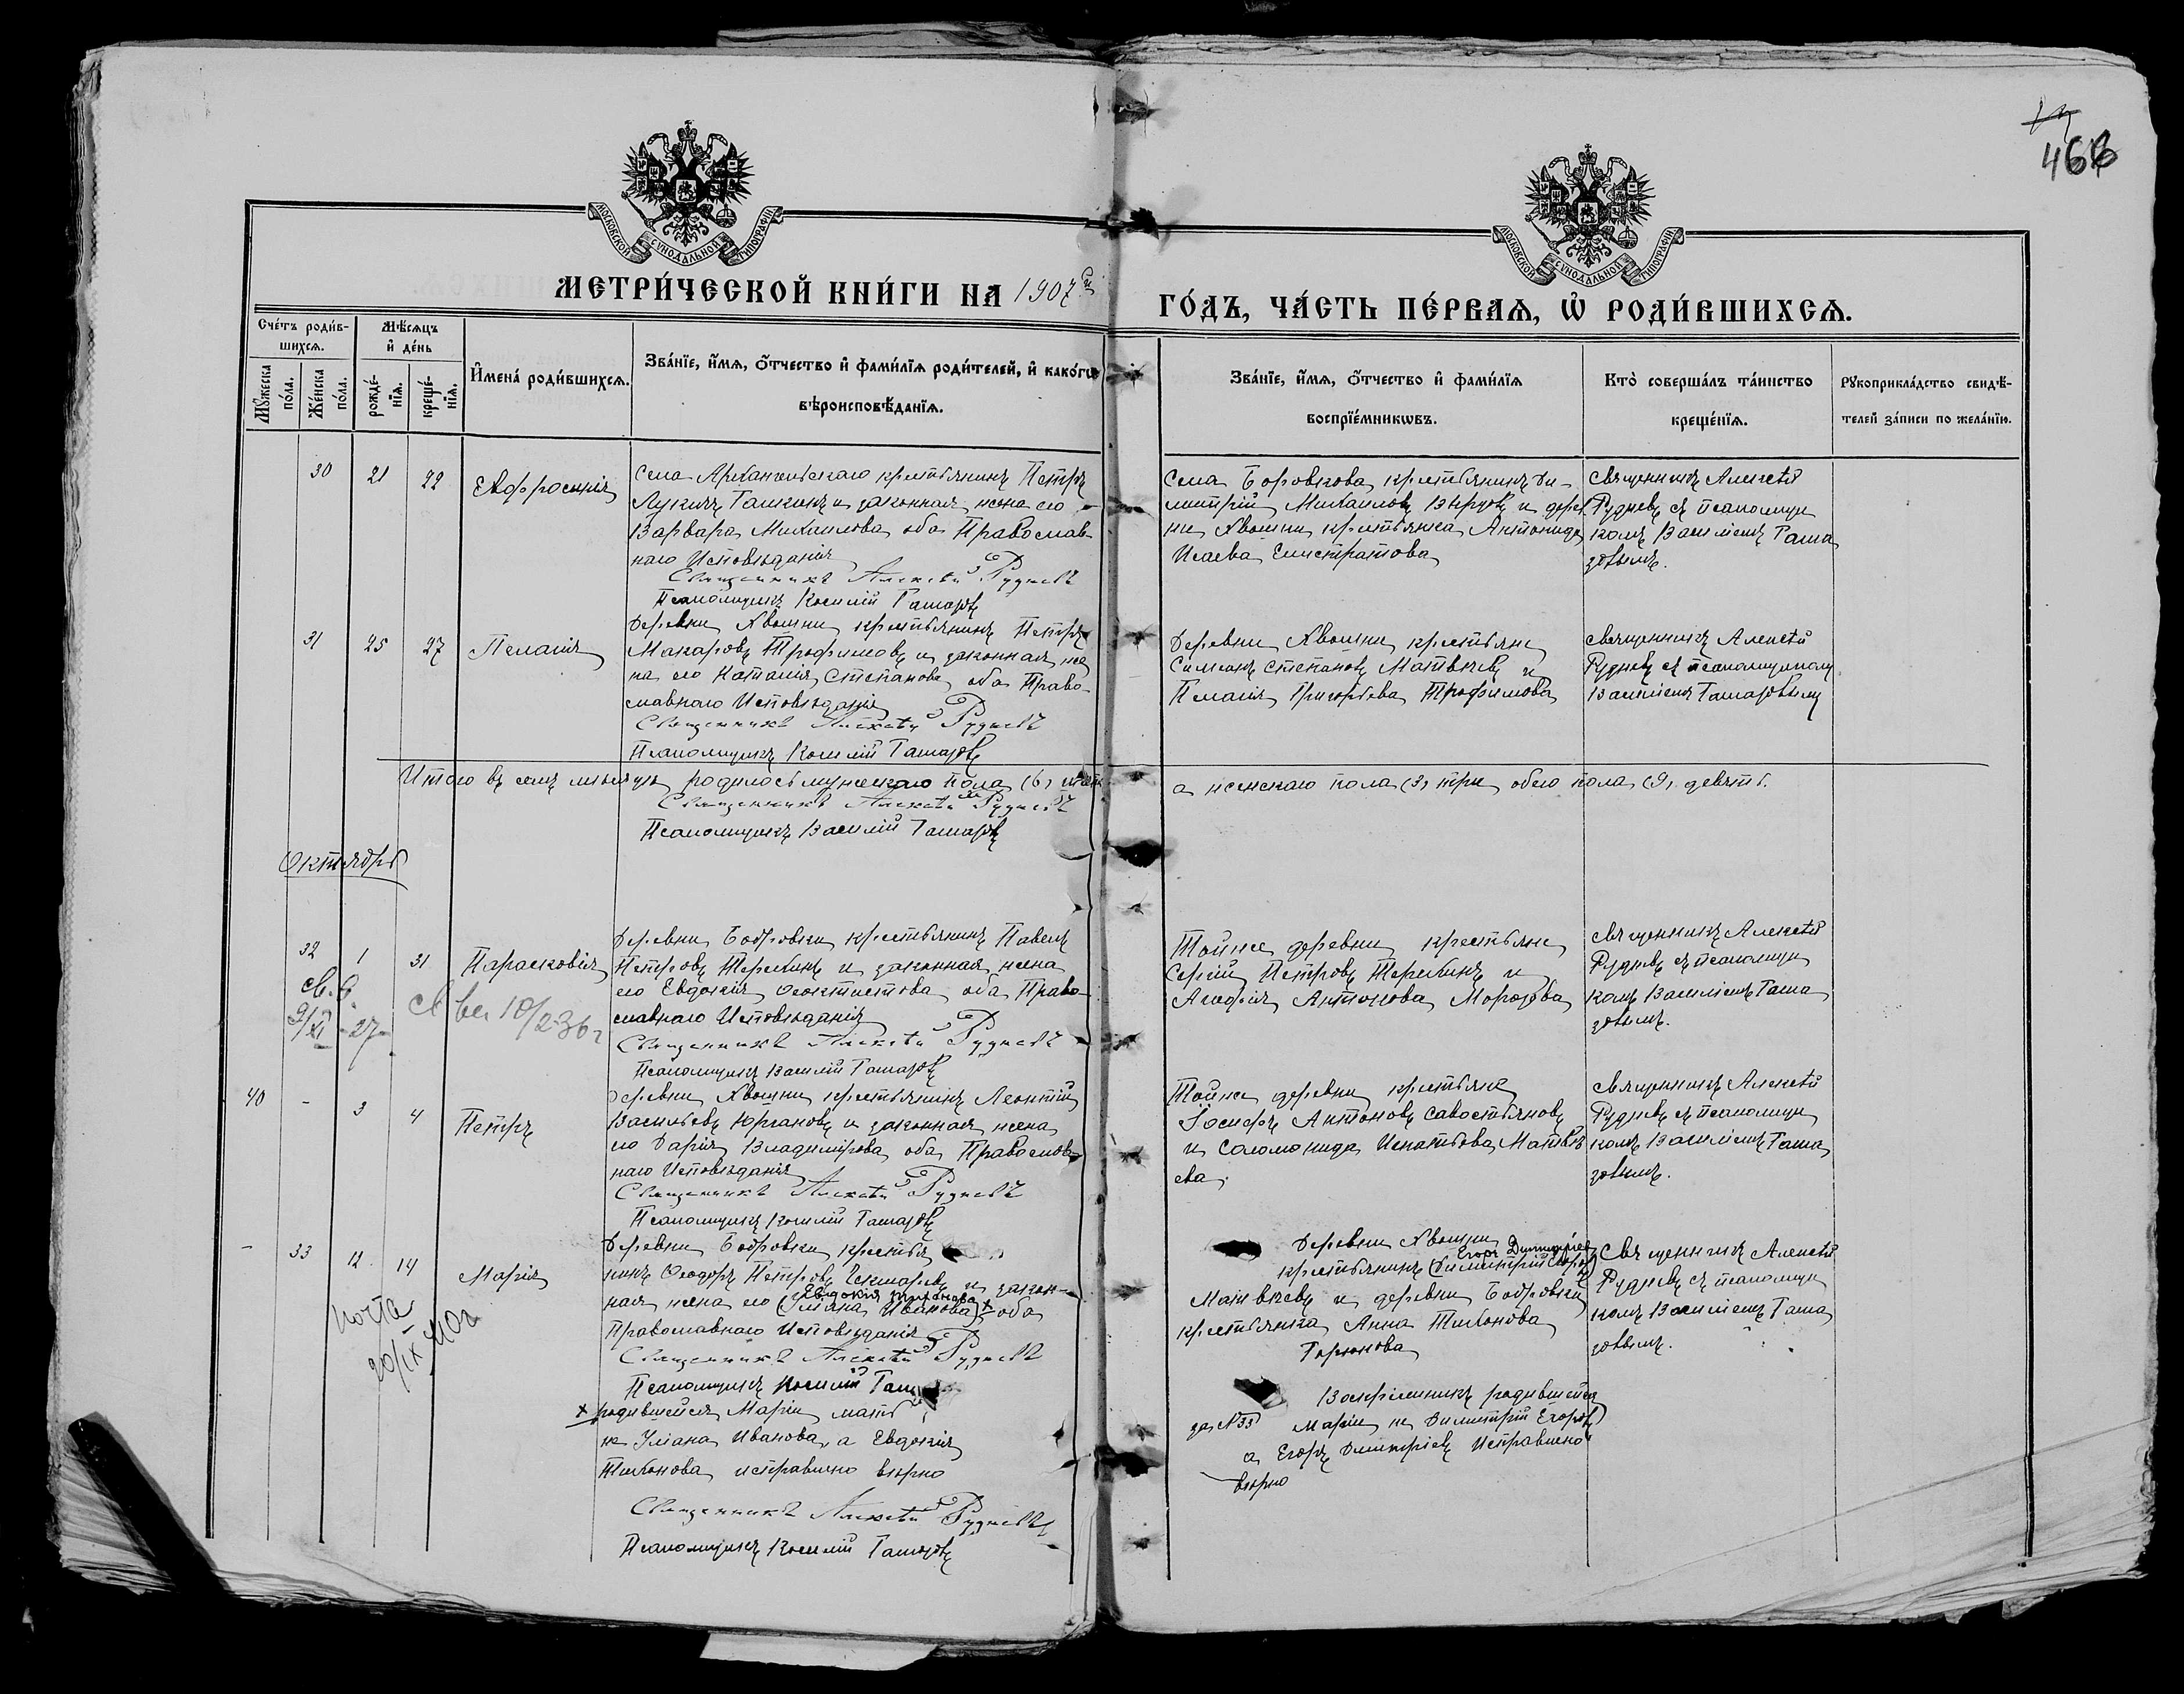 466
МОСКОВСКОЙ СУНОДАЛЬНОЙ ТИПОГРАФІИ
МОСКОВСКОЙ СУНОДАЛЬНОЙ ТИПОГРАФІИ
МЕТРИ́ЧЕСКОЙ КНИ́ГИ НА 1907
ГО́ДЪ, ЧА́СТЬ ПЕ́РВАѦ, Ѡ҆ РОДИ́ВШИХСѦ.
Сче́тъ роди́в-
шихсѧ.
Мꙋ́жеска
по́ла.
Же́нска
по́ла.
Мѣ́сѧцъ
и҆ де́нь
рожде́-
нїѧ.
креще́-
нїѧ.
И҆мена̀ роди́вшихсѧ.
Зва́нїе, и҆́мѧ, ѻ҆́тчество и҆ фами́лїѧ роди́телей, и҆ како́гѡ
вѣроисповѣ́данїѧ.
Зва́нїе, и҆́мѧ, ѻ҆́тчество и҆ фами́лїѧ
воспрїе́мникѡвъ.
Кто̀ соверша́лъ та́инство
креще́нїѧ.
Рꙋкоприкла́дство свидѣ́-
телей за́писи по жела́нїю.
30 21 22 Евфросинія
Села Архангельскаго крестьянинъ Петръ
Лукинъ Галкинъ и законная жена его
Варвара Михаилова, оба Православ-
наго Исповѣданія
Священникъ Алексѣй Рудневъ
Псаломщикъ Василій Гамазовъ
Села Боровкова, крестьянинъ Ди-
митрій Михаиловъ и дерев
ни Хвощни крестьянка Антонида
Исаева Елистратова
Священникъ Алексѣй
Рудневъ съ псаломщи
комъ Василіемъ Гама
зовымъ.
31 25 27 Пелагія
Деревни Хвощни крестьянинъ Петръ
Макаровъ Трофимовъ и законная же
на его Наталія Степанова, оба Право-
славнаго Исповѣданія
Священникъ Алексѣй Рудневъ
Псаломщикъ Василій Гамазовъ
Деревни Хвощни крестьяне
Симеонъ Степановъ Матвѣевъ и
Пелагія Григорьева Трофимова
Священникъ Алексѣй
Рудневъ съ псаломщикомъ
Василіемъ Гамазовымъ
Итого въ семъ мѣсяцѣ родилось мужескаго пола (6) шесть
а женскаго пола (3) три, обего пола (9) девять.
Священникъ Алексѣй Рудневъ
Псаломщикъ Василій Гамазовъ
Октябрь
32 1 31 Парасковія
Деревни Бобровки крестьянинъ Павелъ
Петровъ Терехинъ и законная жена
его Евдокія Ѳеоктистова, оба Право-
славнаго Исповѣданія
Священникъ Алексѣй Рудневъ
Псаломщикъ Василій Гамазовъ
Тойже деревни крестьяне
Сергій Петровъ Терехинъ и
Агафія Антонова Морозова
Священникъ Алексѣй
Рудневъ съ псаломщи
комъ Василіемъ Гама
зовымъ.
св. в.
9/XI -27-
10/2-36 г
40 - 3 4 Петръ
Деревни Хвощни крестьянинъ Леонтій
Васильевъ Юргановъ и законная жена
его Дарія Владимірова, оба Православ-
наго Исповѣданія
Священникъ Алексѣй Рудневъ
Псаломщикъ Василій Гамазовъ
Тойже деревни крестьяне
Іосифъ Антоновъ Савостьяновъ
и Соломонида Игнатьева Матвѣ
ева.
Священникъ Алексѣй
Рудневъ съ псаломщи
комъ Василіемъ Гама
зовымъ.
- 33 12 14 Марія
Деревни Бобровки крестья
нинъ Ѳеодоръ Петровъ и закон-
Евдокія Тихонова
ная жена его (Уліана Иванова)+ оба
Православнаго Исповѣданія
Священникъ Алексѣй Рудневъ
Псаломщикъ Василій Гам
+ родившейся Маріи мать
не Уліана Иванова, а Евдокія
Тихонова исправлено вѣрно
Священникъ Алексѣй Рудневъ
Псаломщикъ Василій Гамазовъ
Деревни Хвощни
Егоръ Димитріев
крестьянинъ (Димитрій Егоров)
Матвѣевъ и деревни Бобровки
крестьянка Анна Тихонова
Горюнова
Воспріемникъ родившейся
за №33 Маріи не Димитрій Егоровъ
а Егоръ Димитріевъ Исправлено
вѣрно
Священникъ Алексѣй
Рудневъ съ псаломщи
комъ Василіемъ Гама
зовымъ.
20/IX